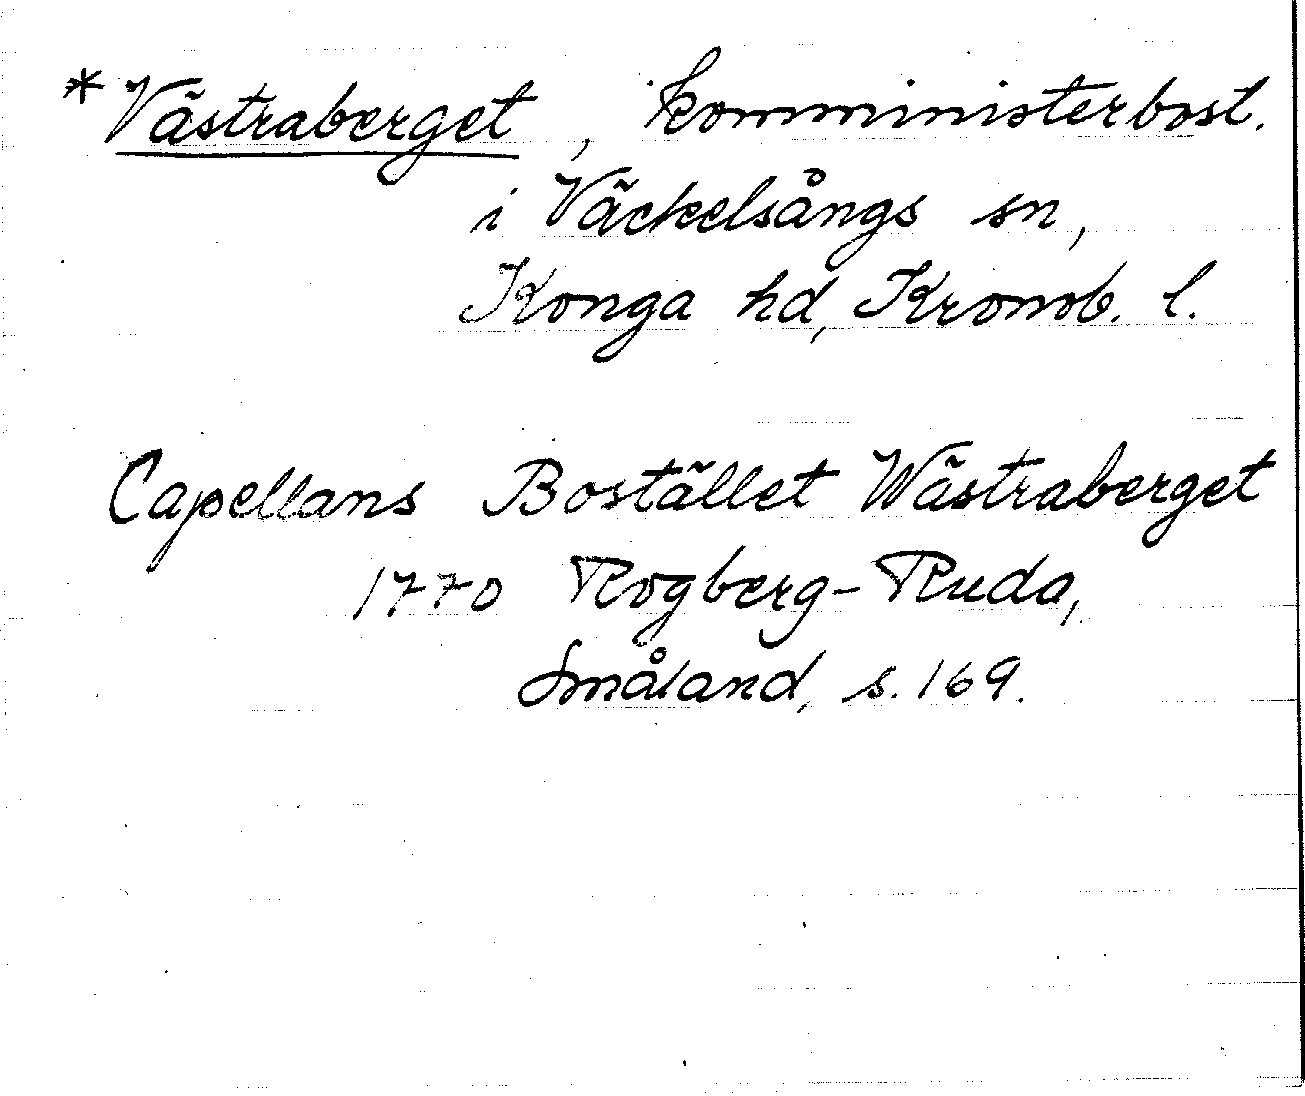 * Västraberget, komministerbost.
i Väckelsångs sn,
Konga hd, Kronob. l.
Capellans Bostället Wästraberget
1770 Rogberg-Ruda,
Småland, s. 169.